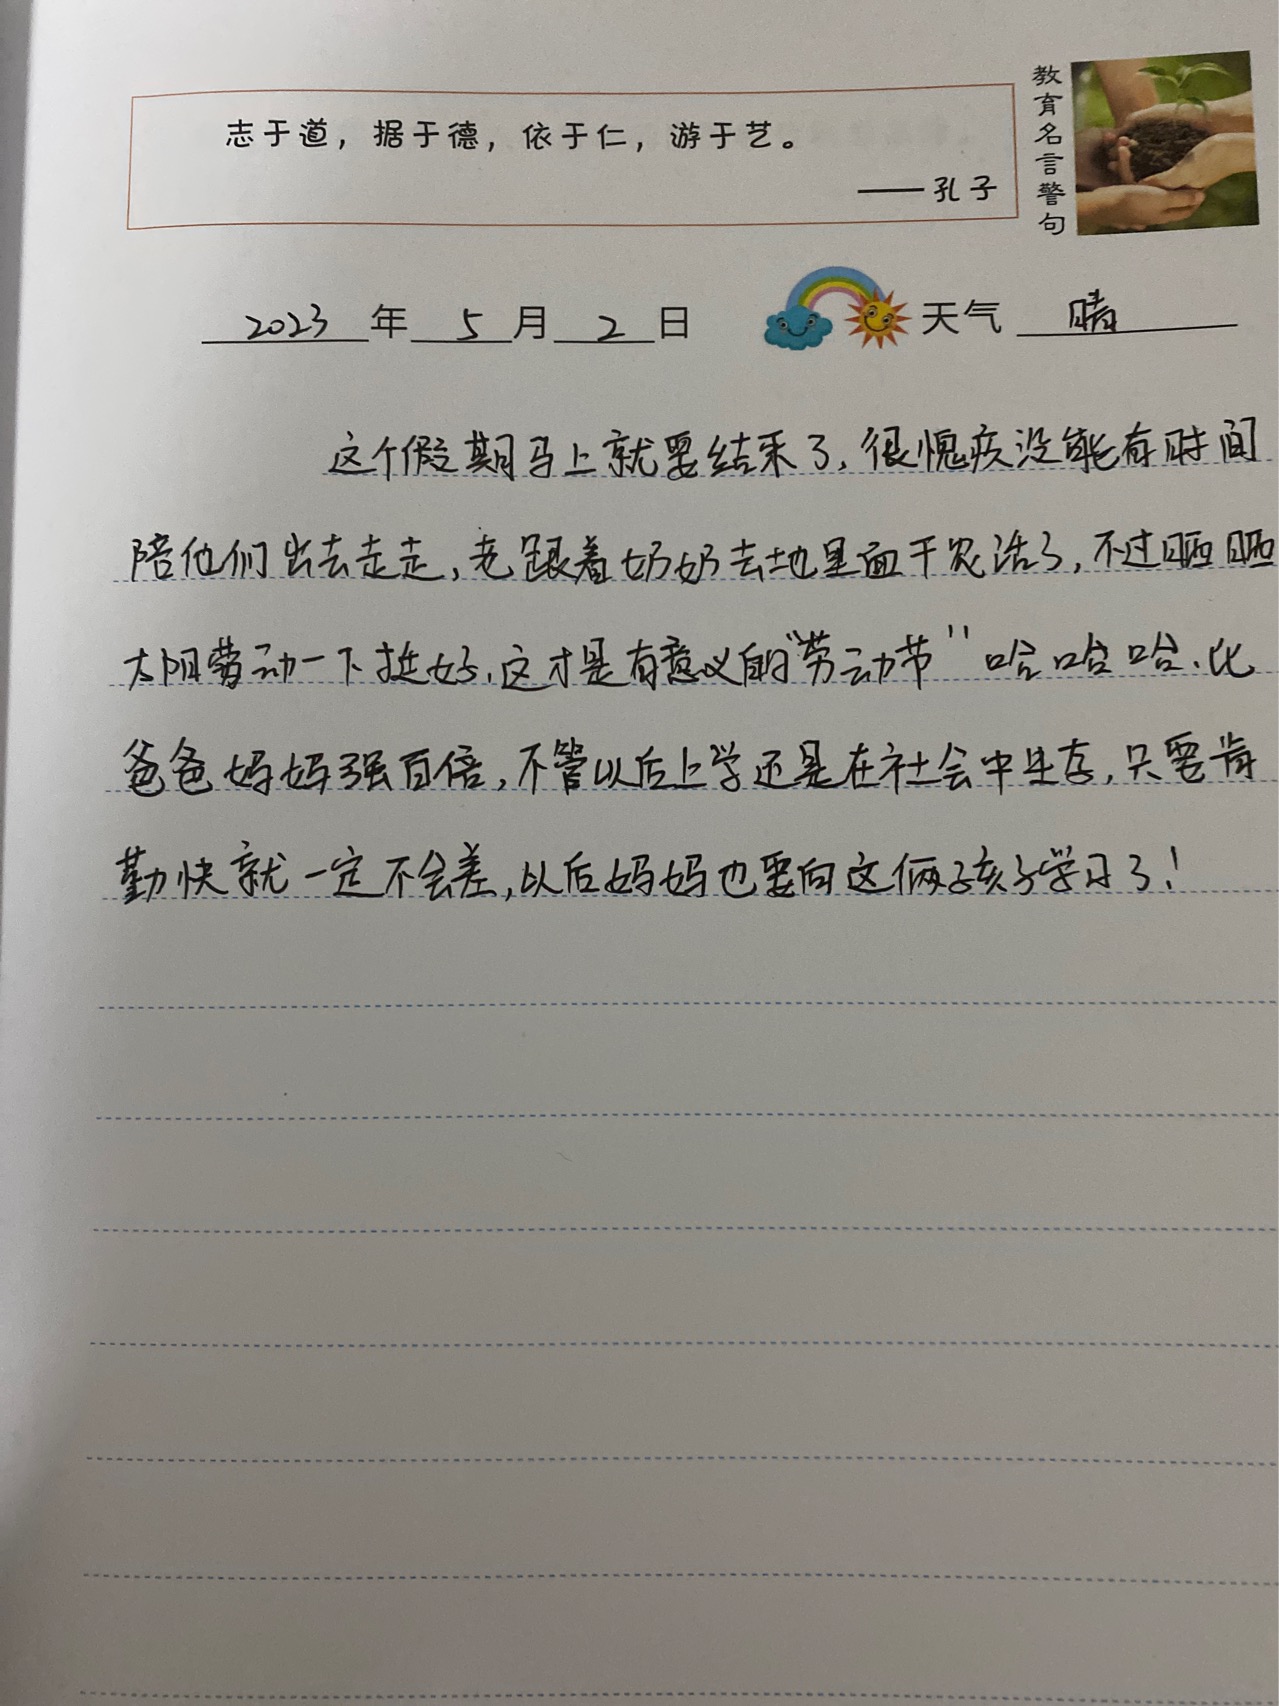 志于道，据于德，依于仁，游于艺。
——孔子
教育名言警句
2023年5月2日 天气 晴
这个假期马上就要结束了，很愧疚没能有时间
陪他们出去走走，老跟着奶奶去地里面干农活了，不过晒晒
太阳劳动一下挺好，这才是有意义的“劳动节”哈哈哈、比
爸爸妈妈强百倍，不管以后上学还是在社会中生存，只要肯
勤快就一定不会差，以后妈妈也要向这俩孩子学习了！